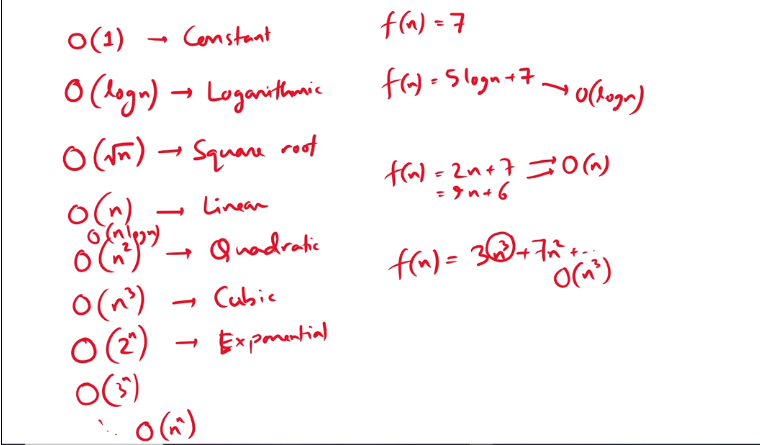 O(1) → Constant
O(logn) → Logarithmic
O(√n) → Square root
O(n) → Linear
O(nlogn)
O(n²) → Quadratic
O(n³) → Cubic
O(2ⁿ) → Exponential
O(3ⁿ)
O(nⁿ)
f(n) = 7
f(n) = 5logn+7 → O(logn)
f(n) = 2n+7 ⇒ O(n)
= 9n+6
f(n) = 3n³+7n²+...
O(n³)